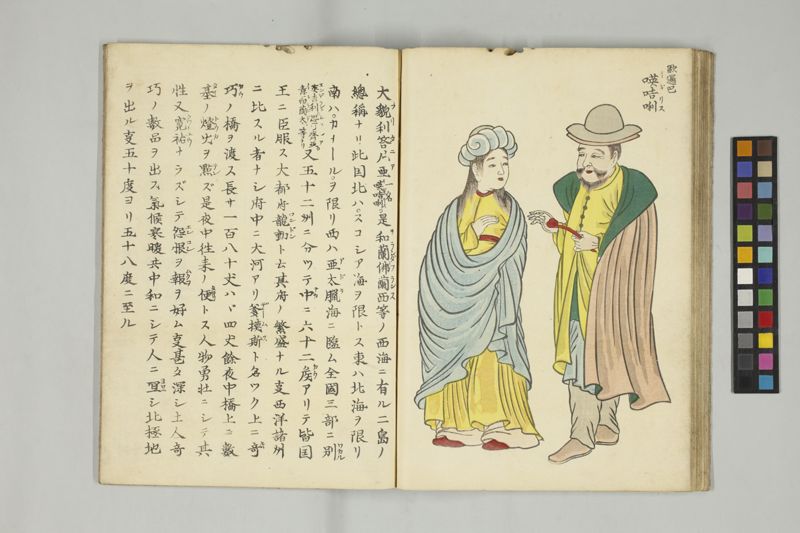 歐邏巴
嘆咭唎
大貌利答尼亜一名嘆咭唎是和蘭佛蘭西等ノ西海ニ有ル二島ノ
總稱ナリ此国北ハスコシア海ヲ限トス東ハ北海ヲ限リ
南ハカナールヲ限リ西ハ亜太臘海ニ臨ム全國三部ニ別
又五十二州ニ分ツテ中ニ六十二處アリテ皆国
王ニ臣服ス大都府龍動ト云其府ノ繁盛ナル支西洋諸州
ニ比スル者ナシ府中ニ大河アリ

ト名ツク上ニ奇
巧ノ橋ヲ渡ス長サ一百八十丈ハヾ四丈餘夜中橋上ニ數
基ノ燈火ヲ點ズ是夜中往来ノ便トス人物勇壮ニシテ其
性又寛裕ナラズシテ怨恨ヲ報ヲ好ム支甚タ深シ土人奇
巧ノ數品ヲ出ス氣候寒暖共中和ニシテ人ニ宜シ北極地
ヲ出ル支五十度ヨリ五十八度ニ至ル